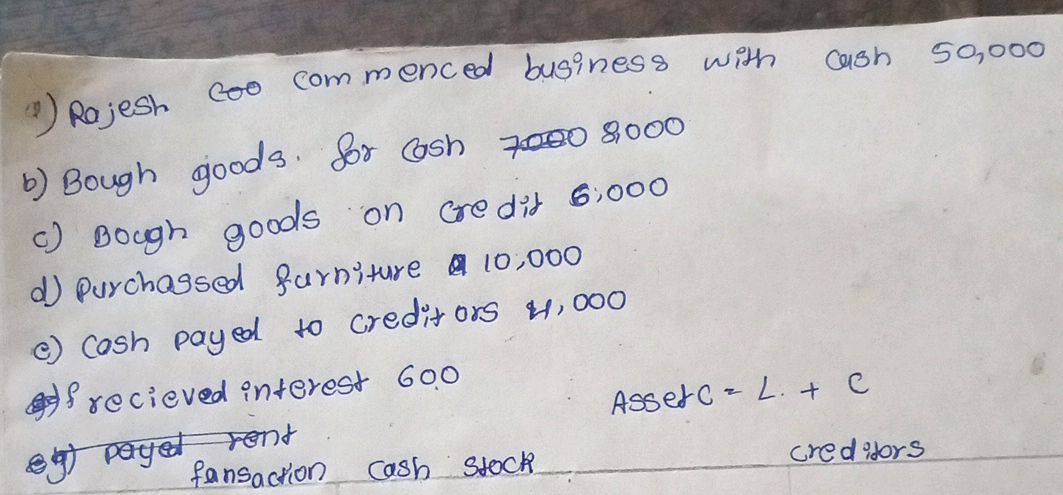 a) Rajesh commenced business with cash 50,000
b) Bough goods. for cash 8000
c) Bough goods on credit 6,000
d) Purchassed furniture 10,000
e) Cash payed to creditors 4,000
f recieved interest 600
Asset = L. + C
g) payed rent
fansaction cash stock creditors